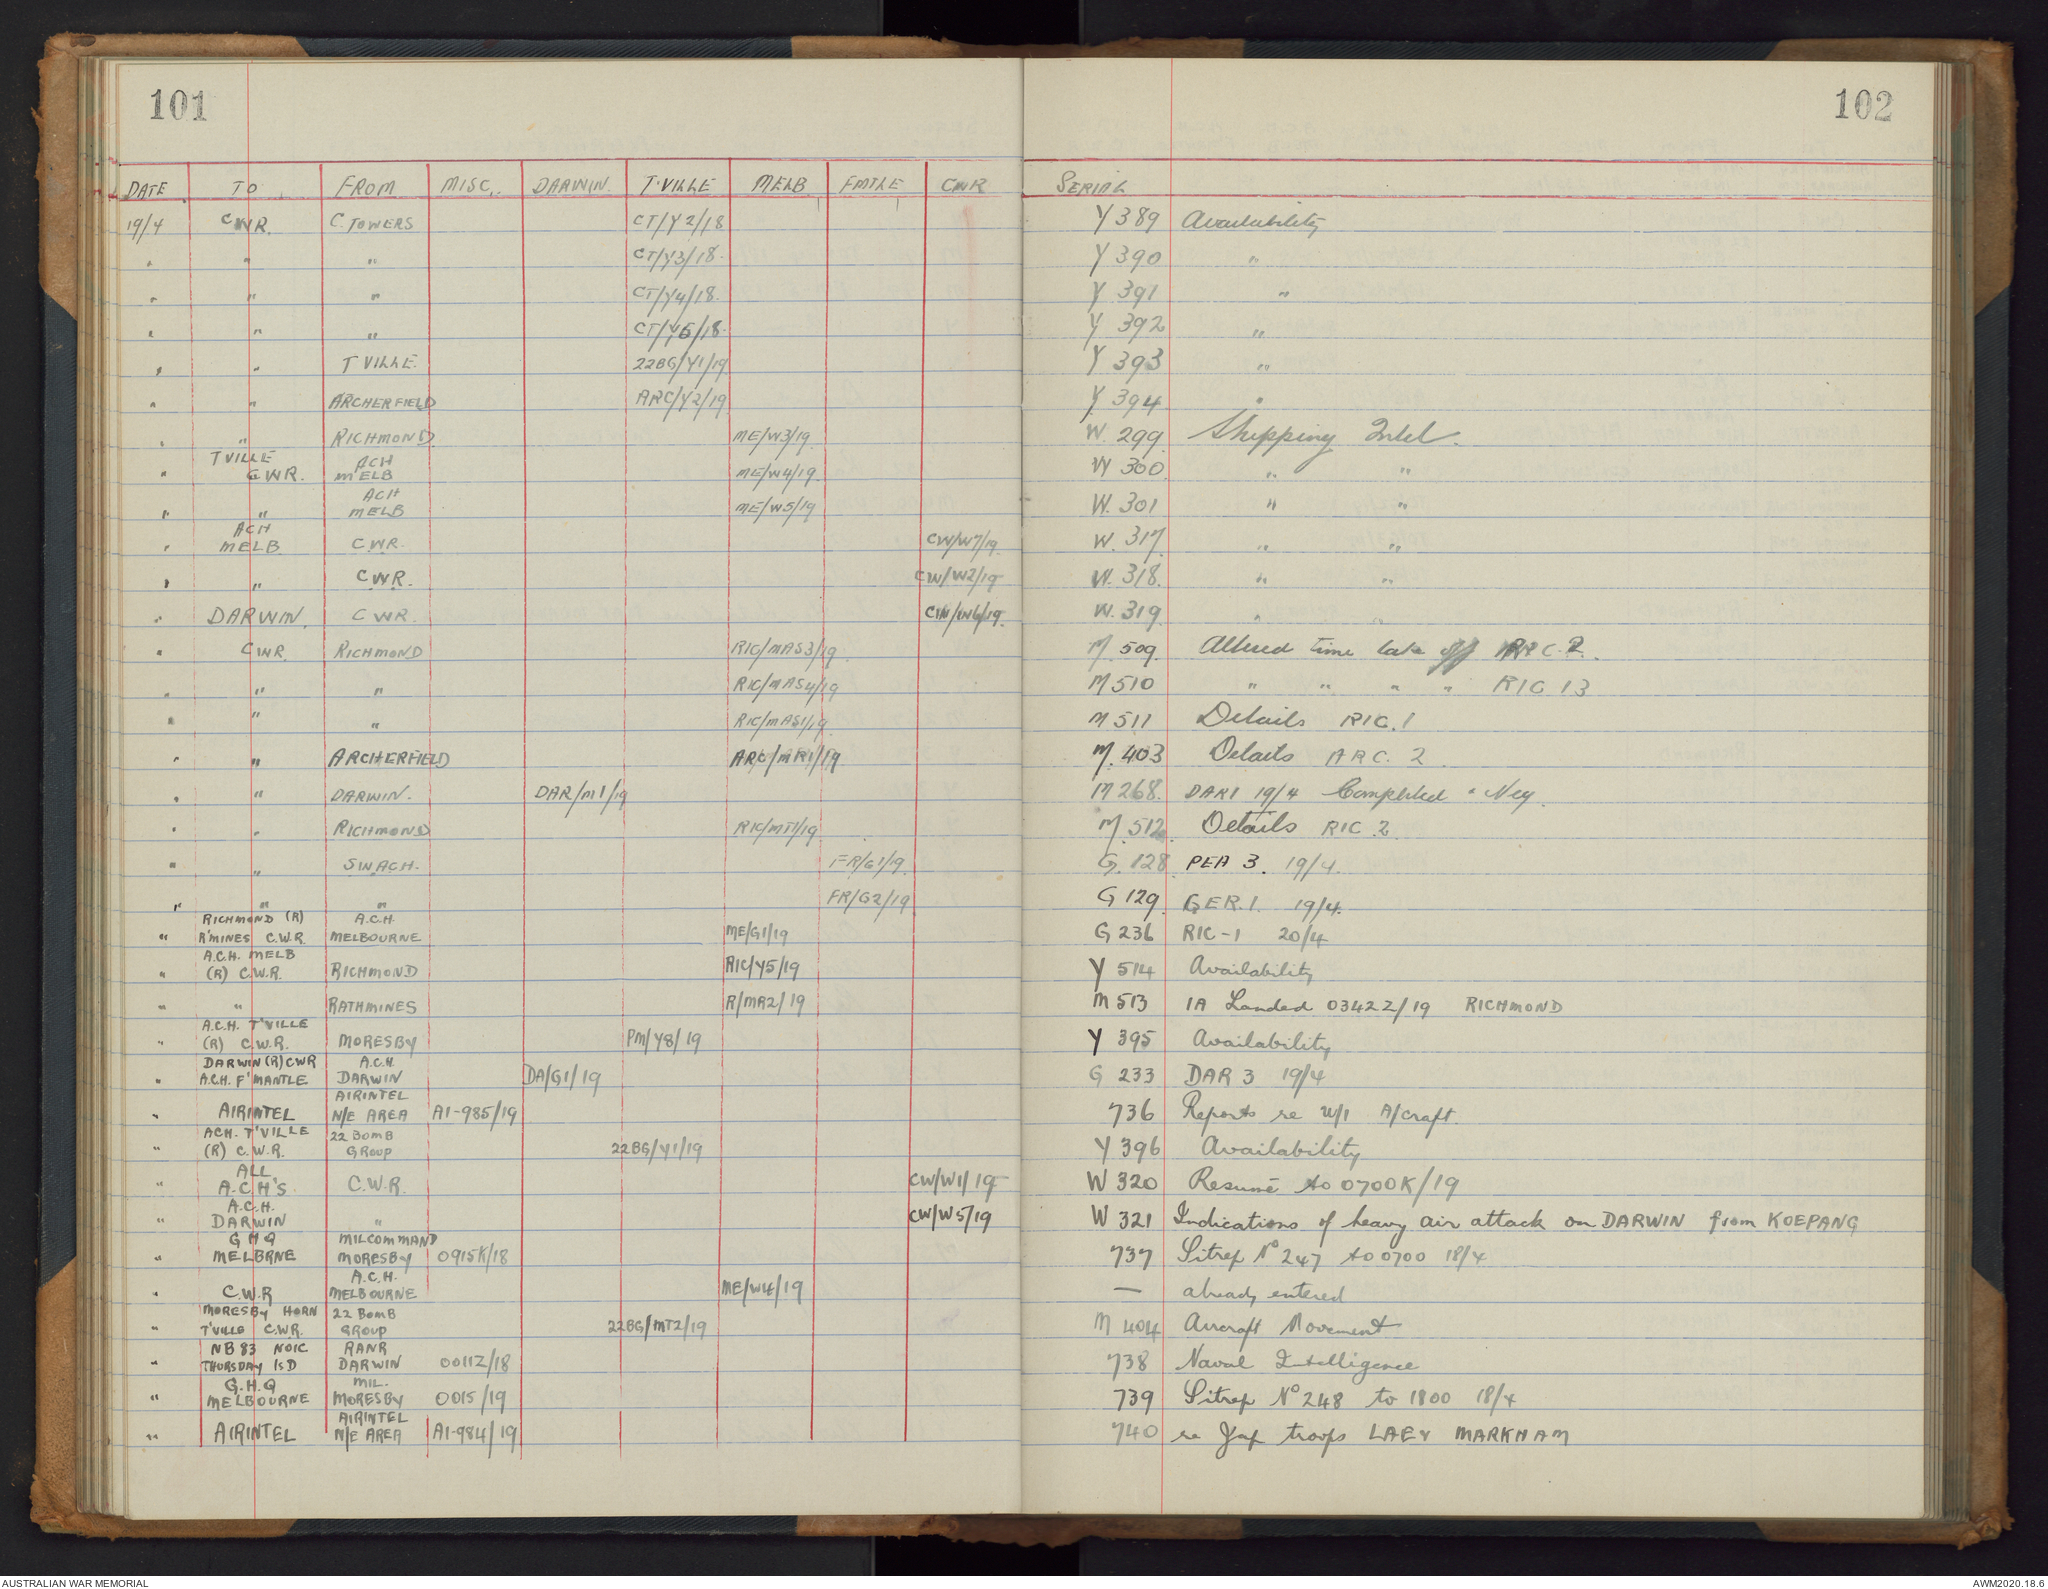 101
102
DATE TO FROM MISC. DARWIN. T'VILLE MELB FMTLE CWR SERIAL
19/4 CWR. C. TOWERS CT/Y2/18 Y 389 Availability
" " " CT/Y3/18. Y 390 "
" " " CT/Y4/18. Y 391 "
" " " CT/Y5/18. Y 392 "
" " T VILLE. 22BG/Y1/19 Y 393 "
" " ARCHERFIELD ARC/Y2/19 Y 394 "
" " RICHMOND ME/W3/19. W. 299 Shipping Intel.
TVILLE ACH
" CWR. MELB ME/W4/19. W 300 " "
ACH
" " MELB ME/W5/19 W. 301 " "
ACH
" MELB C.W.R. CW/W7/19. W. 317 " "
" " CWR. CW/W2/19 W. 318. " "
" DARWIN. CWR. CW/W6/19. W. 319 " "
" CWR. RICHMOND RIC/MAS3/19. M. 509. Altered time take off RIC. 2.
" " " RIC/MAS4/19 M 510 " " " " RIC 13
" " " RIC/MAS1/19 M 511 Details RIC. 1
" " ARCHERFIELD ARC/MR1/19 M. 403 Details ARC. 2
" " DARWIN. DAR/M1/19 M 268. DAR1 19/4 Completed " Neg.
" " RICHMOND RIC/MT1/19. M. 512. Details RIC 2
" " SWACH. FR/G1/19. G. 128 PEA 3. 19/4.
" " " FR/G2/19 G 129 GER. 1. 19/4.
RICHMOND (R) A.C.H.
" R'MINES C.W.R. MELBOURNE ME/G1/19 G 236 RIC-1 20/4
A.C.H. MELB
" (R) C.W.R. RICHMOND RIC/Y5/19 Y 514 Availability
" " RATHMINES R/MR2/19 M 513 1A Landed 0342Z/19 RICHMOND
A.C.H. T'VILLE
" (R) C.W.R. MORESBY PM/Y8/19 Y 395 Availability
DARWIN (R) CWR A.C.H.
" A.C.H. F'MANTLE DARWIN DA/G1/19 G 233 DAR 3 19/4
AIRINTEL
" AIRINTEL N/E AREA A1-985/19 736 Reports re U/I A/craft.
ACH. T'VILLE 22 BOMB
" (R) C.W.R. GROUP 22BG/Y1/19 Y 396 Availability
ALL
" A.C.H'S C.W.R. CW/W1/19 W 320 Resumé to 0700K/19
A.C.H.
" DARWIN " CW/W5/19 W 321 Indications of heavy air attack on DARWIN from KOEPANG
GHQ MILCOMMAND
" MELBRNE MORESBY 0915K/18 737 Sitrep No 247 to 0700 18/4
A.C.H.
" C.W.R MELBOURNE ME/W4/19 — already entered
MORESBY HORN 22 BOMB
" T'VILLE C.W.R. GROUP 22BG/MT2/19 M 404 Aircraft Movement
NB 83 NOIC RANR
" THURSDAY ISD DARWIN 0011Z/18 738 Naval Intelligence
G.H.Q MIL.
" MELBOURNE MORESBY 0015/19 739 Sitrep No 248 to 1800 18/4
AIRINTEL
" AIRINTEL N/E AREA A1-984/19 740 re Jap troops LAE & MARKHAM
AUSTRALIAN WAR MEMORIAL
AWM2020.18.6